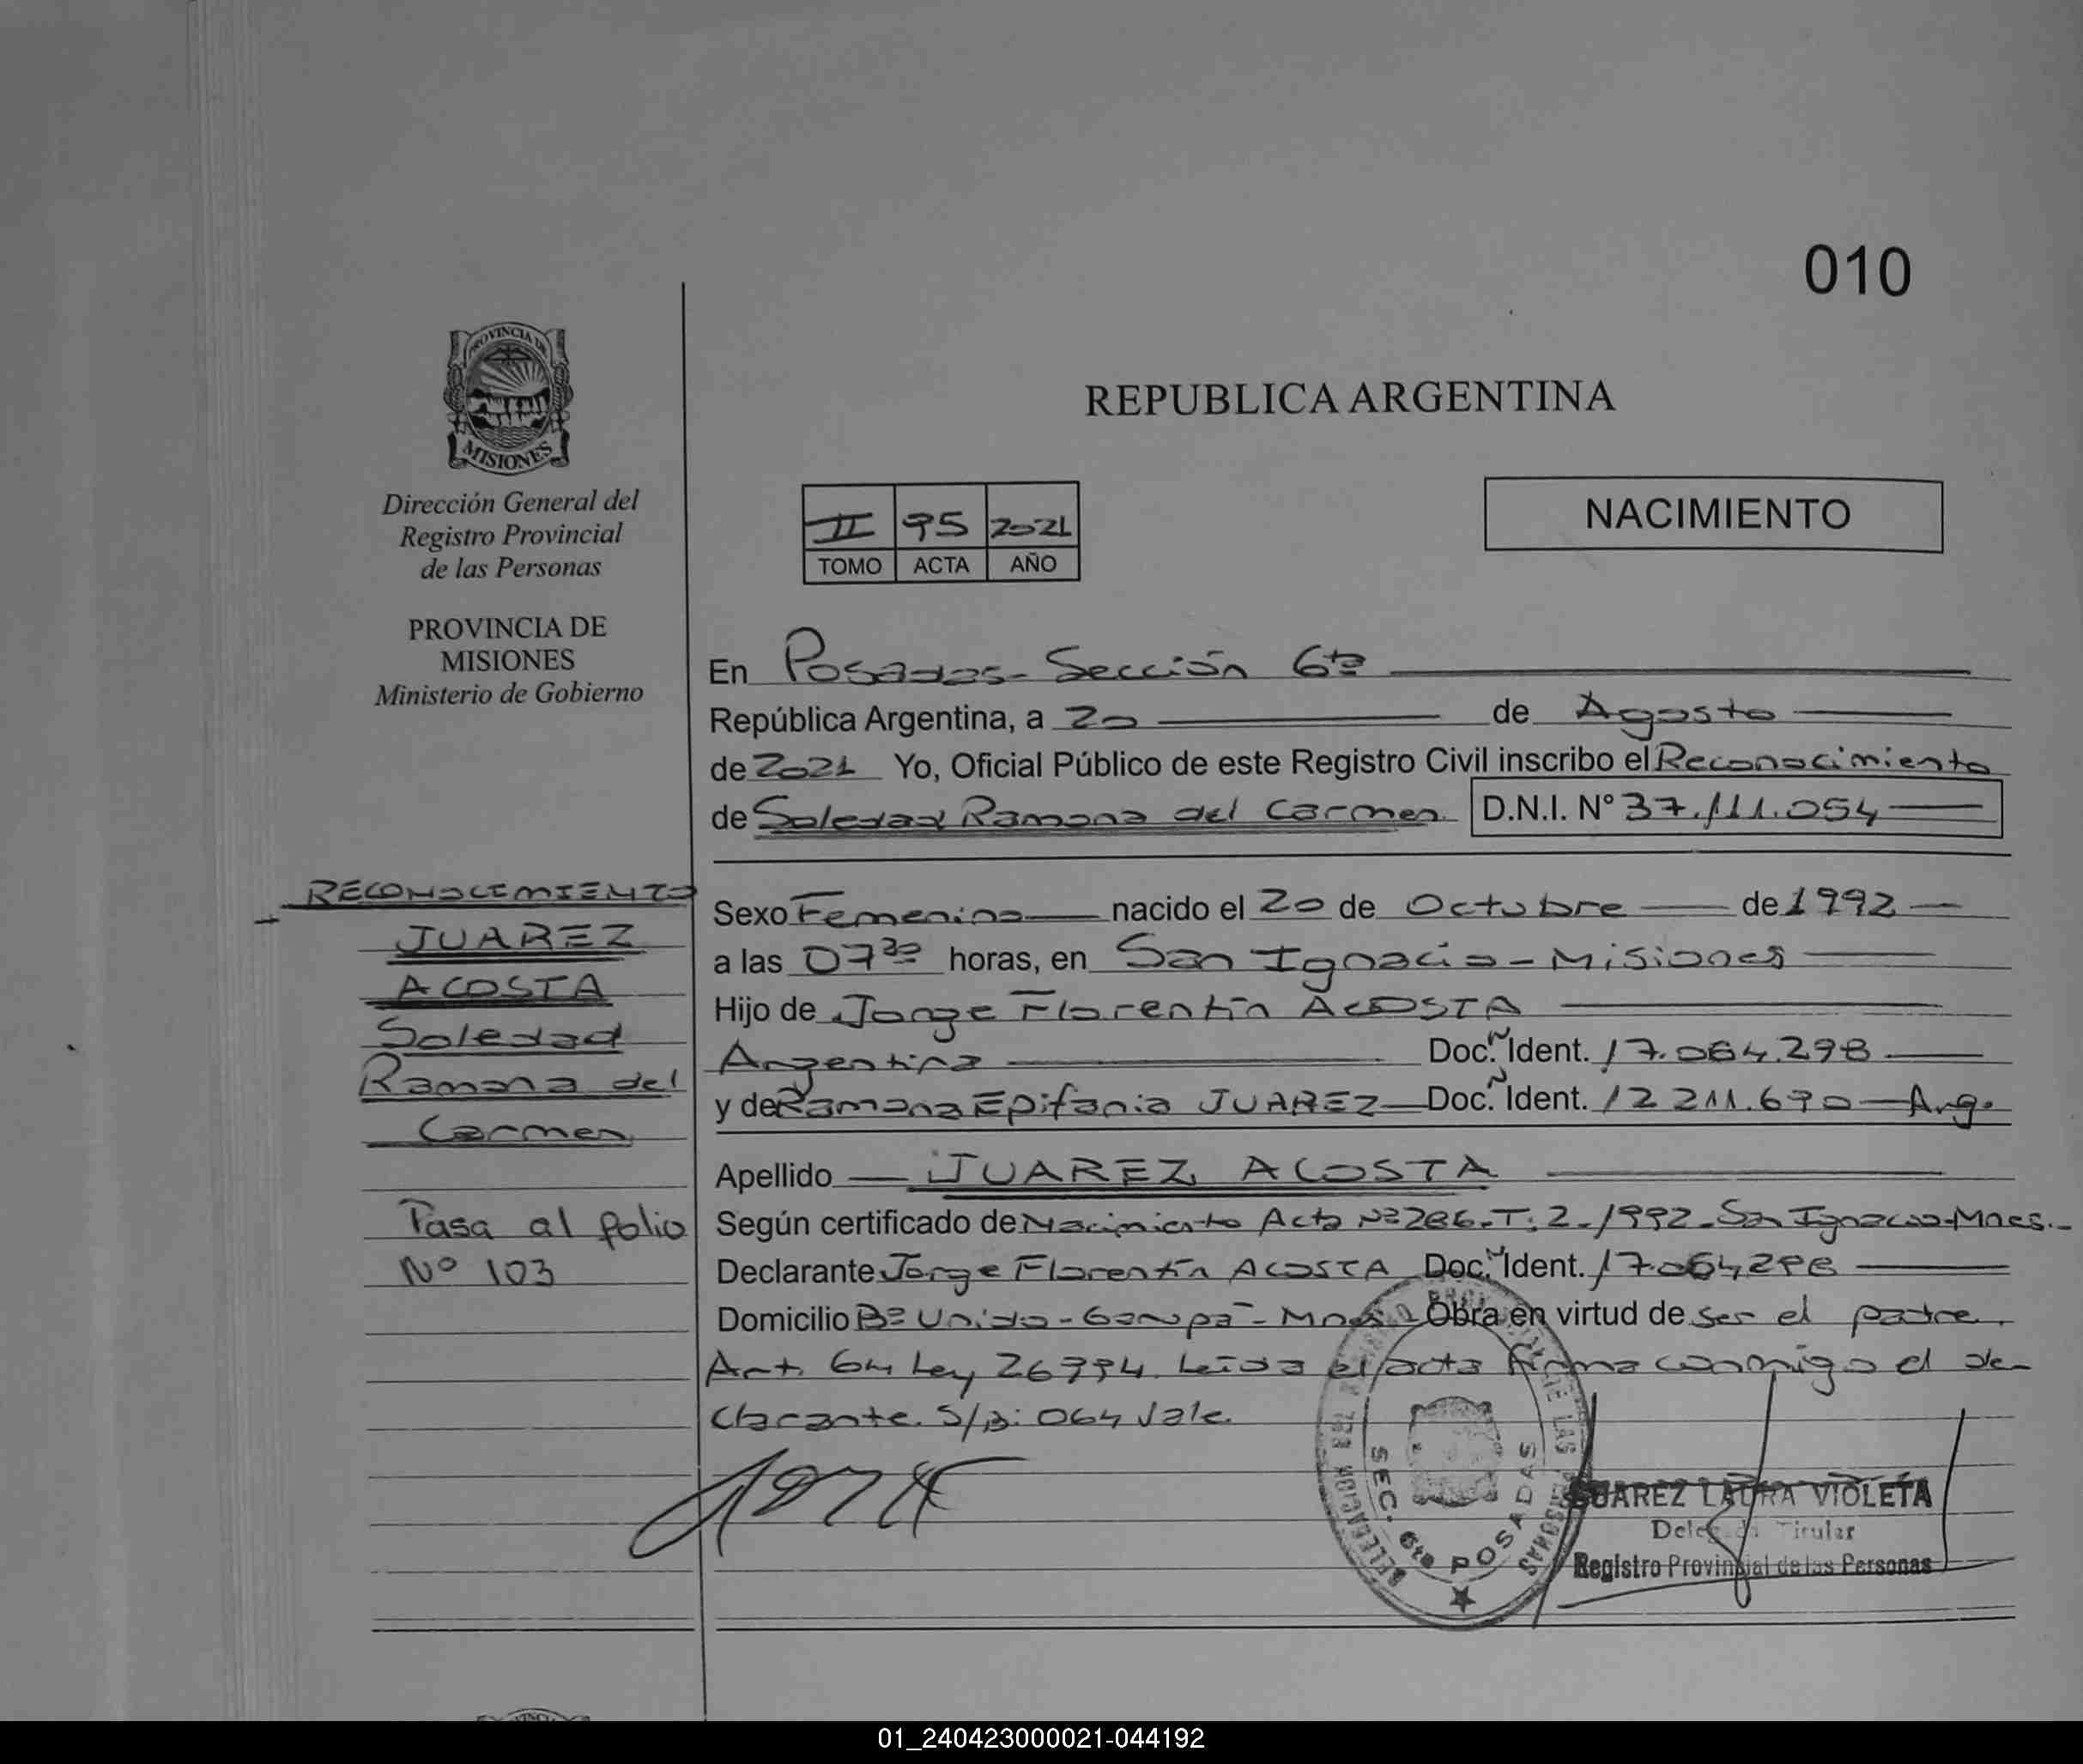 010
PROVINCIA DE
MISIONES
REPUBLICA ARGENTINA
Dirección General del
Registro Provincial
de las Personas
PROVINCIA DE
MISIONES
Ministerio de Gobierno
II 95 2021
TOMO ACTA AÑO
NACIMIENTO
En Posadas - Sección 6ta
República Argentina, a 20 de Agosto
de 2021 Yo, Oficial Público de este Registro Civil inscribo el Reconocimiento
de Soledad Ramona del Carmen D.N.I. N° 37.111.054
RECONOCIMIENTO
JUAREZ
ACOSTA
Soledad
Ramona del
Carmen
Pasa al folio
Nº 103
Sexo Femenino nacido el 20 de Octubre de 1992
a las 07 30 horas, en San Ignacio - Misiones
Hijo de Jorge Florentín ACOSTA
Argentina Doc. Ident. 17.064.298
y de Ramona Epifania JUAREZ Doc. Ident. 12 211.690 - Arg.
Apellido JUAREZ ACOSTA
Según certificado de Nacimiento Acta Nº 286 - T: 2 - 1992 - San Ignacio - Mnes. -
Declarante Jorge Florentín ACOSTA Doc. Ident. 17064298
Domicilio Bº Unido - Garupá - Mnes. Obra en virtud de ser el padre.
Art. 64 Ley 26994. Leída el acta firma conmigo el de-
clarante. S/B: 064 Vale.
SEC. 6ta POSADAS
SUAREZ LAURA VIOLETA
Delegada Titular
Registro Provincial de las Personas
01_240423000021-044192